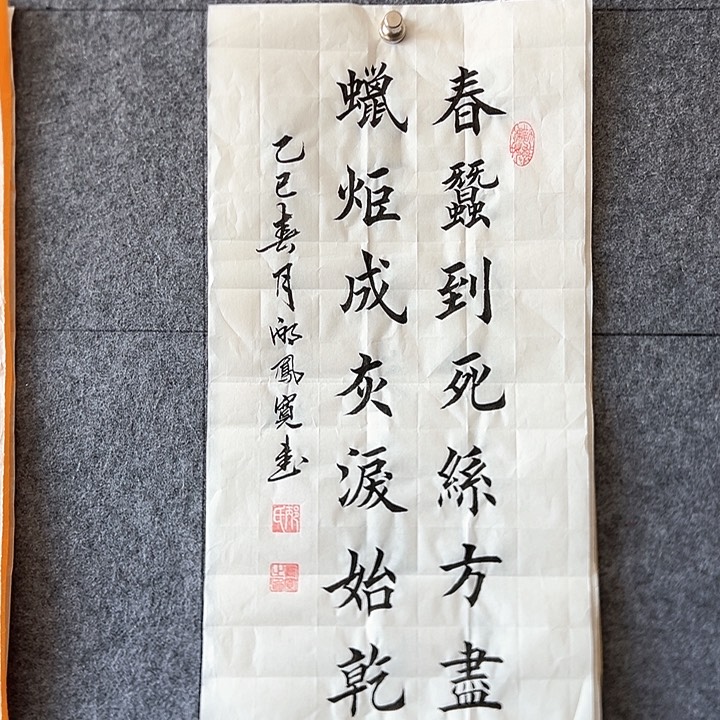 春蠶到死絲方盡
蠟炬成灰淚始乾
乙巳春月邴鳳寬書